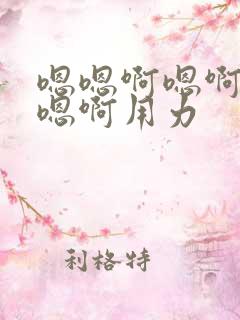 嗯嗯啊嗯啊
嗯啊用力
利格特